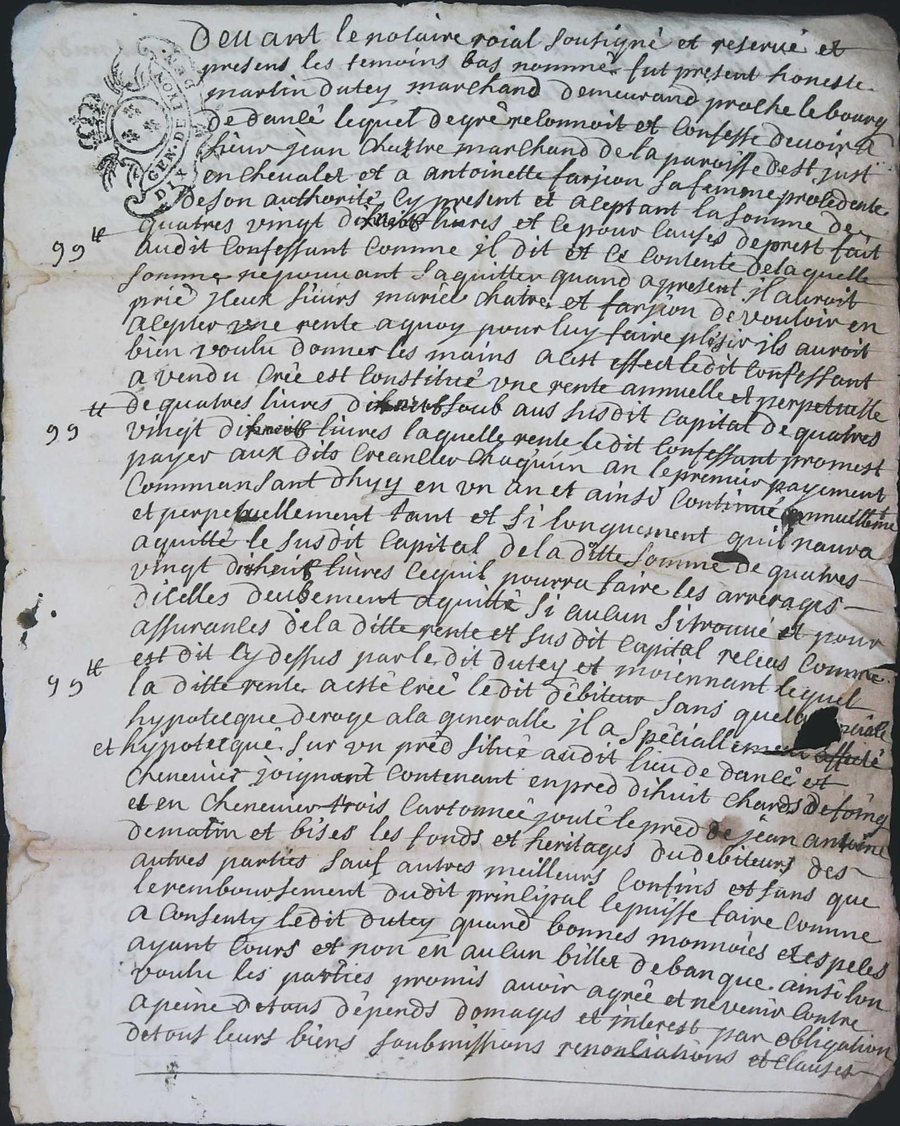 GEN. DE LION
DIX DEN.
Devant le notaire roial sousigné et reservé et
presens les temoins bas nommés fut present honeste
martin dutey marchand demeurand proche le bourg
de dancé lequel de gré reconnoit et confesse devoir a
sieur jean Chastre marchand de la paroisse de st just
en chevalet et a antoinette farjon sa femme procedente
de son authorité Cy present et aceptant la somme de
99 ₶ quatres vingt dixneufs livres et ce pour causes de prest fait
audit Confessant comme jl dit et ce contente de laquelle
somme ne pouvant saquitter quand a present jl auroit
prié jceux sieurs mariée chatre et farjon de vouloir en
acepter vne rente a quoy pour luy faire plesir ils auroit
bien voulu donner les mains a cest effect ledit confessant
a vendu Crée est constitué vne rente annuelle et perpetuelle
99 ₶ de quatres livres dixneufs soub aus susdit Capital de quatres
vingt dixneufs livres laquelle rente le dit confessant promest
payer aux dits Creancier chaquun an le premier payement
Commansant dhuy en vn an et ainsi continué annuellemt
et perpetuellement tant et si longuement quil naura
aquitté le susdit Capital de la ditte somme de quatres
vingt dixneufs livres cequil pourra faire les arrerages
dicelles deubement aquitté si aucun si trouve et pour
assurances de la ditte rente et susdit capital
99 ₶ est dit Cy dessus par le dit dutey et moiennant lequel
la ditte rente a esté Creé ledit débiteur sans quela
hypotecque deroge a la generalle jl a speciallement affecté
et hypotecqué sur vn pred situé audit lieu de dancé et
chenevier joignant contenant en pred dihuit chards de foing
et en chenevier trois cartonnée jouté le pred de jean antoine
de matin et bises les fonds et heritages du debiteurs des
autres parties sauf autres meilleurs confins et sans que
le remboursement dudit principal le puisse faire comme
a consenty ledit dutey quand bonnes monnoies et espeses
ayant cours et non en aucun billet de banque ainsi lon
voulu les parties promis avoir agreé et ne venir contre
a peine de tous dépends domages et interest par obligation
de tous leurs biens soubmissions renonciations et clauses